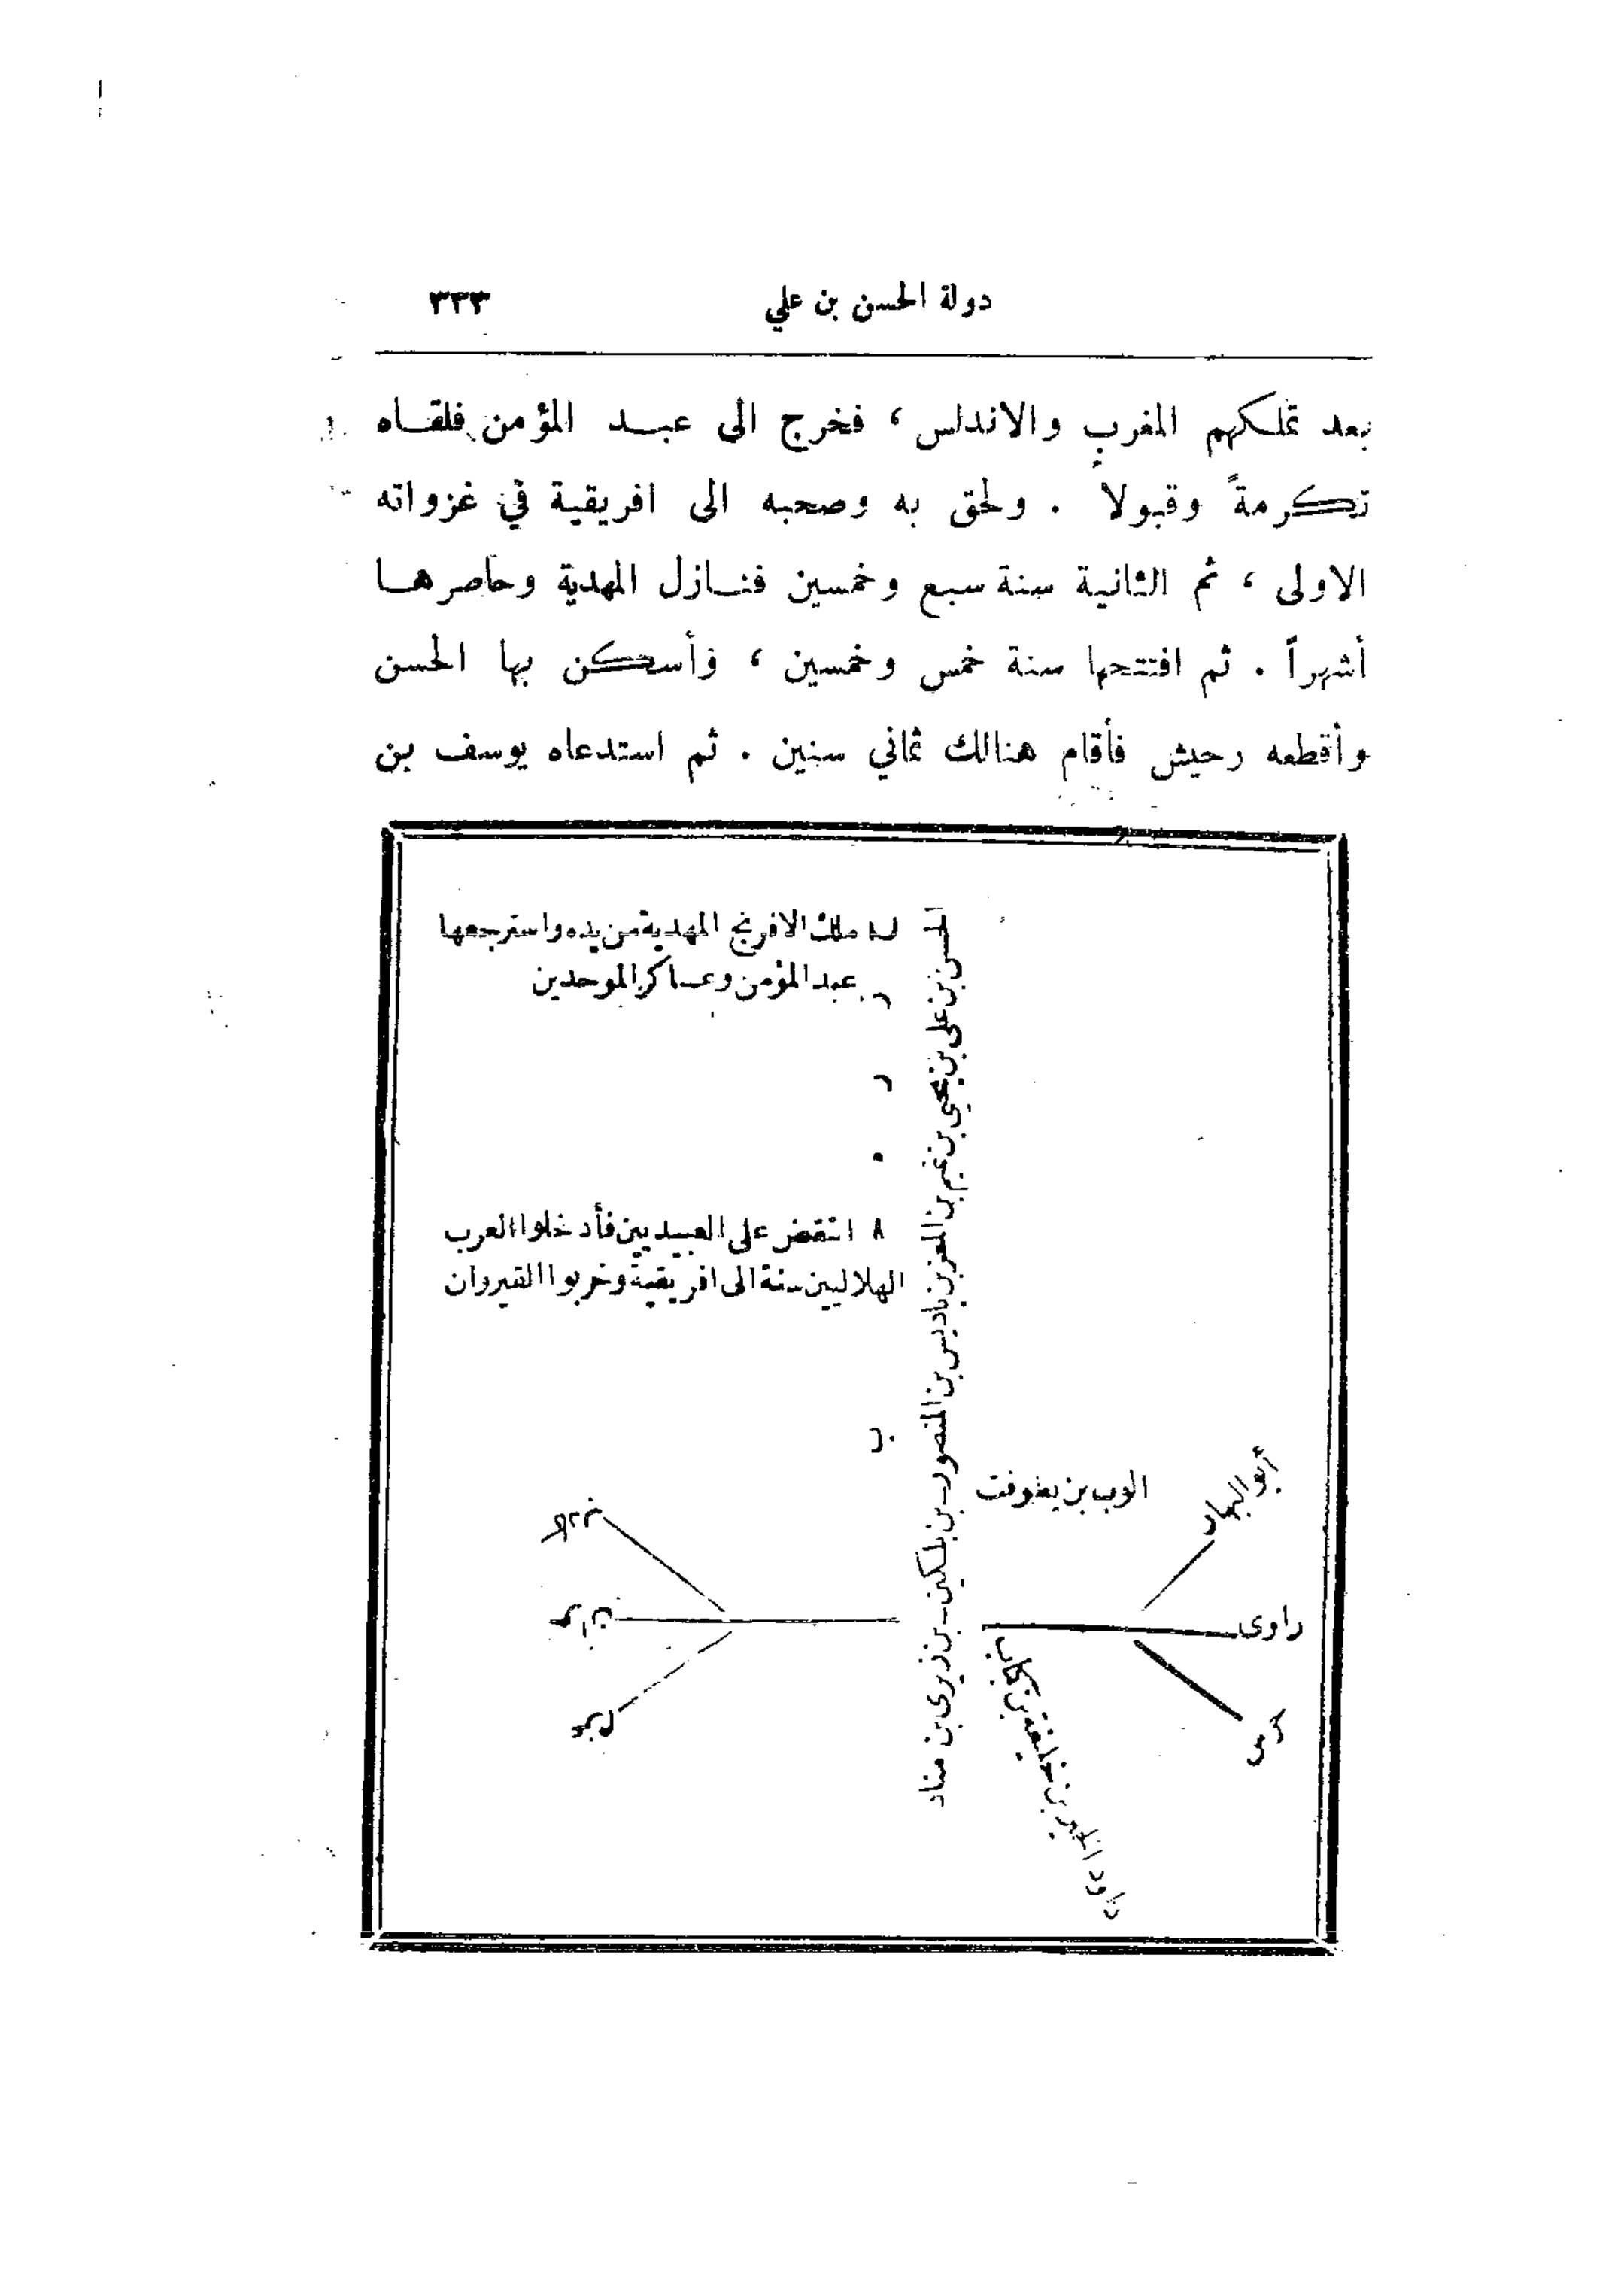 دولة الحسن بن علي ٣٣٣
بعد تملكهم المغرب والاندلس ، فخرج الى عبد المؤمن فلقاه
تكرمةً وقبولاً . ولحق به وصحبه الى افريقية في غزواته
الاولى ، ثم الثانية سنة سبع وخمسين فنازل المهدية وحاصرها
أشهراً . ثم افتتحها سنة خمس وخمسين ، وأسكن بها الحسن
وأقطعه رحيش فأقام هنالك ثماني سنين . ثم استدعاه يوسف بن
ملك الافرنج المهدية من يده واسترجعها
عبد المؤمن وعساكر الموحدين
ر
٨ انتقض على العبيديين فأدخلوا العرب
الهلاليين سنة الى افريقية وخربوا القيروان
ب
الحسن بن علي بن يحيى بن تميم بن المعز بن باديس بن المنصور بن بلكين بن زيري بن مناد
بن يطوفت
أبو البهار
راوى